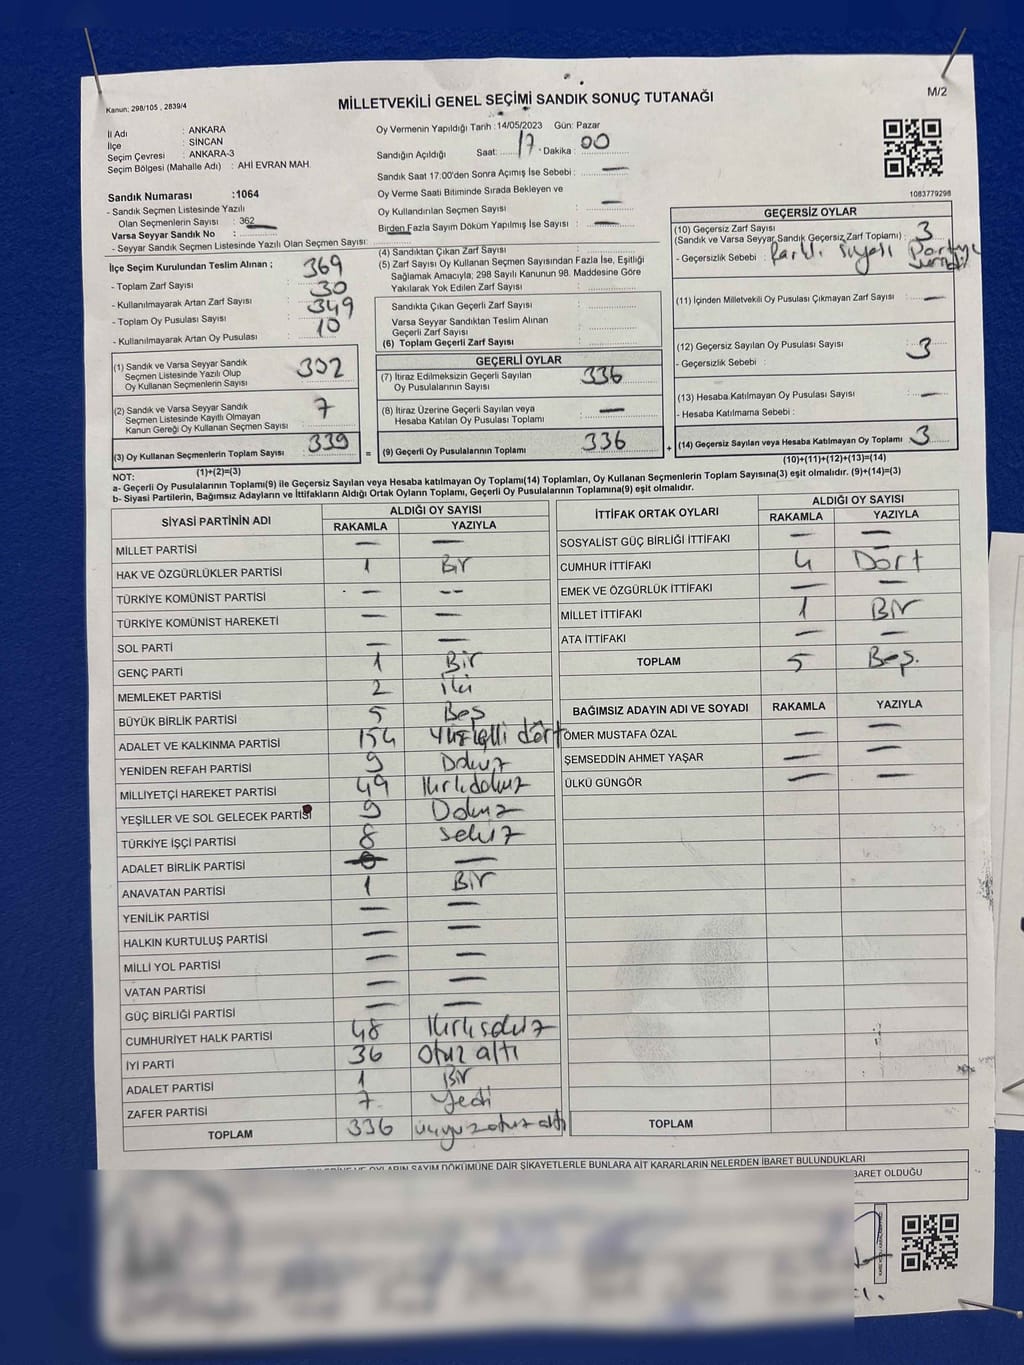 Kanun: 298/105 , 2839/4
MİLLETVEKİLİ GENEL SEÇİMİ SANDIK SONUÇ TUTANAĞI
M/2
İl Adı : ANKARA
İlçe : SİNCAN
Seçim Çevresi : ANKARA-3
Seçim Bölgesi (Mahalle Adı) : AHİ EVRAN MAH.
Sandık Numarası :1064
- Sandık Seçmen Listesinde Yazılı
Olan Seçmenlerin Sayısı : 362
Varsa Seyyar Sandık No :
- Seyyar Sandık Seçmen Listesinde Yazılı Olan Seçmen Sayısı:
Oy Vermenin Yapıldığı Tarih :14/05/2023 Gün: Pazar
Sandığın Açıldığı Saat: 17 Dakika : 00
Sandık Saat 17:00'den Sonra Açımış İse Sebebi : —
Oy Verme Saati Bitiminde Sırada Bekleyen ve
Oy Kullandırılan Seçmen Sayısı : —
Birden Fazla Sayım Döküm Yapılmış İse Sayısı : —
1083779298
İlçe Seçim Kurulundan Teslim Alınan ;
- Toplam Zarf Sayısı : 369
- Kullanılmayarak Artan Zarf Sayısı : 30
- Toplam Oy Pusulası Sayısı : 349
- Kullanılmayarak Artan Oy Pusulası : 10
(1) Sandık ve Varsa Seyyar Sandık
Seçmen Listesinde Yazılı Olup
Oy Kullanan Seçmenlerin Sayısı 332
(2) Sandık ve Varsa Seyyar Sandık
Seçmen Listesinde Kayıtlı Olmayan
Kanun Gereği Oy Kullanan Seçmen Sayısı : 7
(3) Oy Kullanan Seçmenlerin Toplam Sayısı 339
(1)+(2)=(3)
(4) Sandıktan Çıkan Zarf Sayısı :
(5) Zarf Sayısı Oy Kullanan Seçmen Sayısından Fazla İse, Eşitliği
Sağlamak Amacıyla; 298 Sayılı Kanunun 98. Maddesine Göre
Yakılarak Yok Edilen Zarf Sayısı :
Sandıkta Çıkan Geçerli Zarf Sayısı :
Varsa Seyyar Sandıktan Teslim Alınan
Geçerli Zarf Sayısı :
(6) Toplam Geçerli Zarf Sayısı :
GEÇERLİ OYLAR
(7) İtiraz Edilmeksizin Geçerli Sayılan
Oy Pusulalarının Sayısı : 336
(8) İtiraz Üzerine Geçerli Sayılan veya
Hesaba Katılan Oy Pusulası Toplamı : —
= (9) Geçerli Oy Pusulalarının Toplamı 336 +
GEÇERSİZ OYLAR
(10) Geçersiz Zarf Sayısı
(Sandık ve Varsa Seyyar Sandık Geçersiz Zarf Toplamı) : 3
- Geçersizlik Sebebi :
(11) İçinden Milletvekili Oy Pusulası Çıkmayan Zarf Sayısı : —
(12) Geçersiz Sayılan Oy Pusulası Sayısı : 3
- Geçersizlik Sebebi :
(13) Hesaba Katılmayan Oy Pusulası Sayısı : —
- Hesaba Katılmama Sebebi :
(14) Geçersiz Sayılan veya Hesaba Katılmayan Oy Toplamı 3
(10)+(11)+(12)+(13)=(14)
NOT:
a- Geçerli Oy Pusulalarının Toplamı(9) ile Geçersiz Sayılan veya Hesaba katılmayan Oy Toplamı(14) Toplamları, Oy Kullanan Seçmenlerin Toplam Sayısına(3) eşit olmalıdır. (9)+(14)=(3)
b- Siyasi Partilerin, Bağımsız Adayların ve İttifakların Aldığı Ortak Oyların Toplamı, Geçerli Oy Pusulalarının Toplamına(9) eşit olmalıdır.
SİYASİ PARTİNİN ADI ALDIĞI OY SAYISI
RAKAMLA YAZIYLA
MİLLET PARTİSİ — —
HAK VE ÖZGÜRLÜKLER PARTİSİ 1 Bir
TÜRKİYE KOMÜNİST PARTİSİ — --
TÜRKİYE KOMÜNİST HAREKETİ — —
SOL PARTİ — —
GENÇ PARTİ 1 Bir
MEMLEKET PARTİSİ 2 iki
BÜYÜK BİRLİK PARTİSİ 5 Beş
ADALET VE KALKINMA PARTİSİ 154 Yüzelli dört
YENİDEN REFAH PARTİSİ 9 Dokuz
MİLLİYETÇİ HAREKET PARTİSİ 49 Kırkdokuz
YEŞİLLER VE SOL GELECEK PARTİSİ 9 Dokuz
TÜRKİYE İŞÇİ PARTİSİ 8 sekiz
ADALET BİRLİK PARTİSİ —
ANAVATAN PARTİSİ 1 Bir
YENİLİK PARTİSİ — —
HALKIN KURTULUŞ PARTİSİ — —
MİLLİ YOL PARTİSİ — —
VATAN PARTİSİ — —
GÜÇ BİRLİĞİ PARTİSİ — —
CUMHURİYET HALK PARTİSİ 48 Kırksekiz
İYİ PARTİ 36 otuz altı
ADALET PARTİSİ 1 Bir
ZAFER PARTİSİ 7 Yedi
TOPLAM 336 üçyüzotuz altı
İTTİFAK ORTAK OYLARI ALDIĞI OY SAYISI
RAKAMLA YAZIYLA
SOSYALİST GÜÇ BİRLİĞİ İTTİFAKI — —
CUMHUR İTTİFAKI 4 Dört
EMEK VE ÖZGÜRLÜK İTTİFAKI — —
MİLLET İTTİFAKI 1 Bir
ATA İTTİFAKI — —
TOPLAM 5 Beş.
BAĞIMSIZ ADAYIN ADI VE SOYADI RAKAMLA YAZIYLA
ÖMER MUSTAFA ÖZAL — —
ŞEMSEDDİN AHMET YAŞAR — —
ÜLKÜ GÜNGÖR — —
TOPLAM
OYLARIN SAYIM DÖKÜMÜNE DAİR ŞİKAYETLERLE BUNLARA AİT KARARLARIN NELERDEN İBARET BULUNDUKLARI
İBARET OLDUĞU